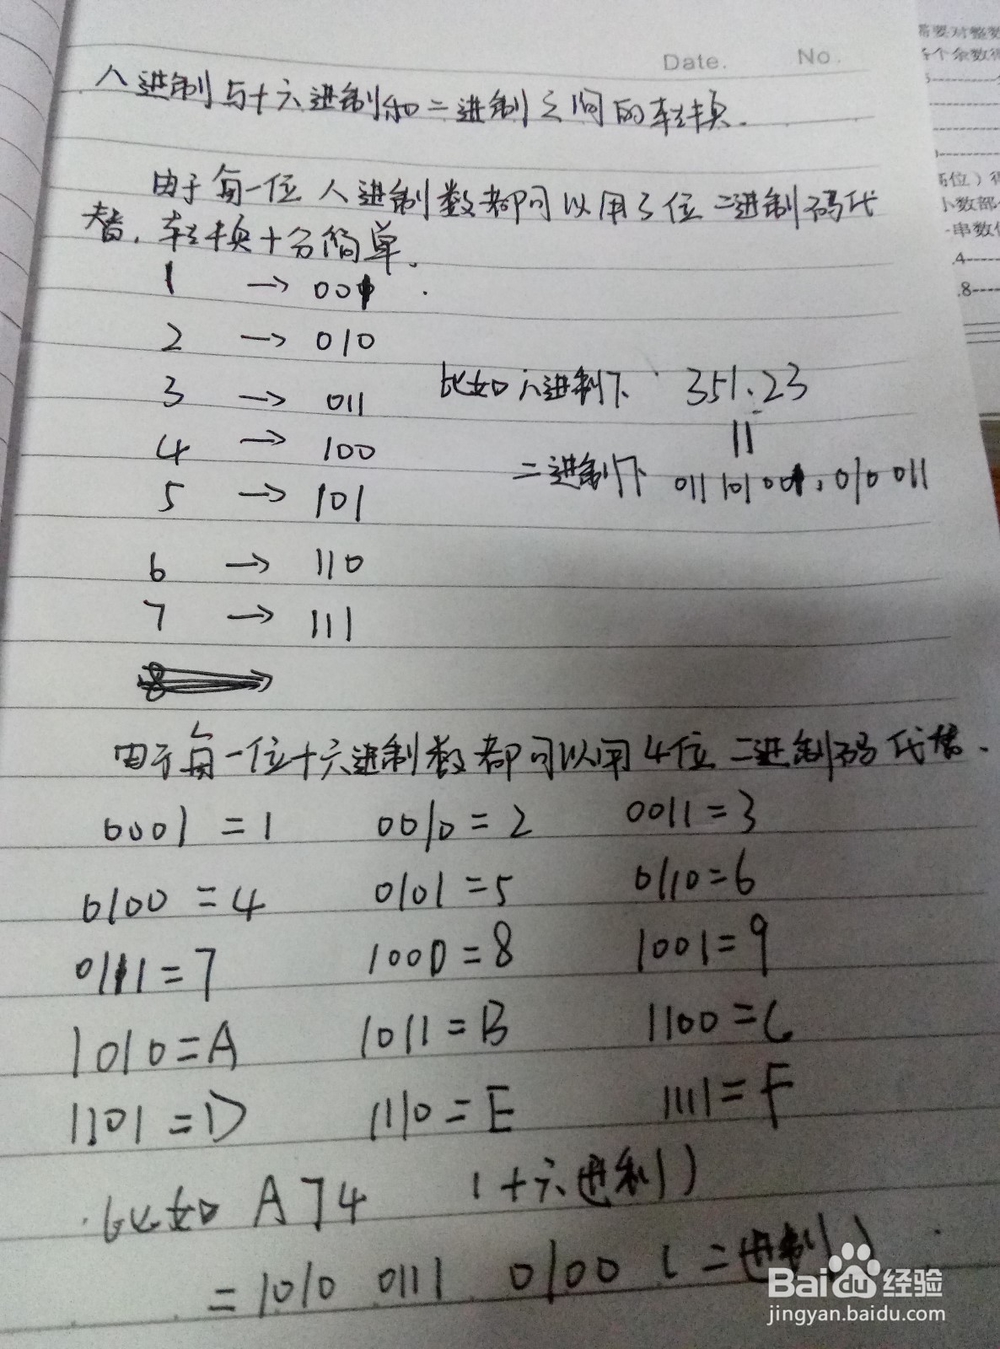 Date.    No.
八进制与十六进制和二进制之间的转换.
由于每一位八进制数都可以用3位二进制码代
替.转换十分简单.
1 → 001
2 → 010
3 → 011
比如八进制下 351.23
4 → 100
11
二进制下 011 101 001.010 011
5 → 101
6 → 110
7 → 111
由于每一位十六进制数都可以用4位二进制码代替.
0001 = 1    0010 = 2    0011 = 3
0100 = 4    0101 = 5    0110 = 6
0111 = 7    1000 = 8    1001 = 9
1010 = A    1011 = B    1100 = C
1101 = D    1110 = E    1111 = F
比如 A74 (十六进制)
= 1010 0111 0100 (二进制)
需要对整数
各个余数得
位）得
小数部
串数位
.4----
.8----
Baidu经验
jingyan.baidu.com